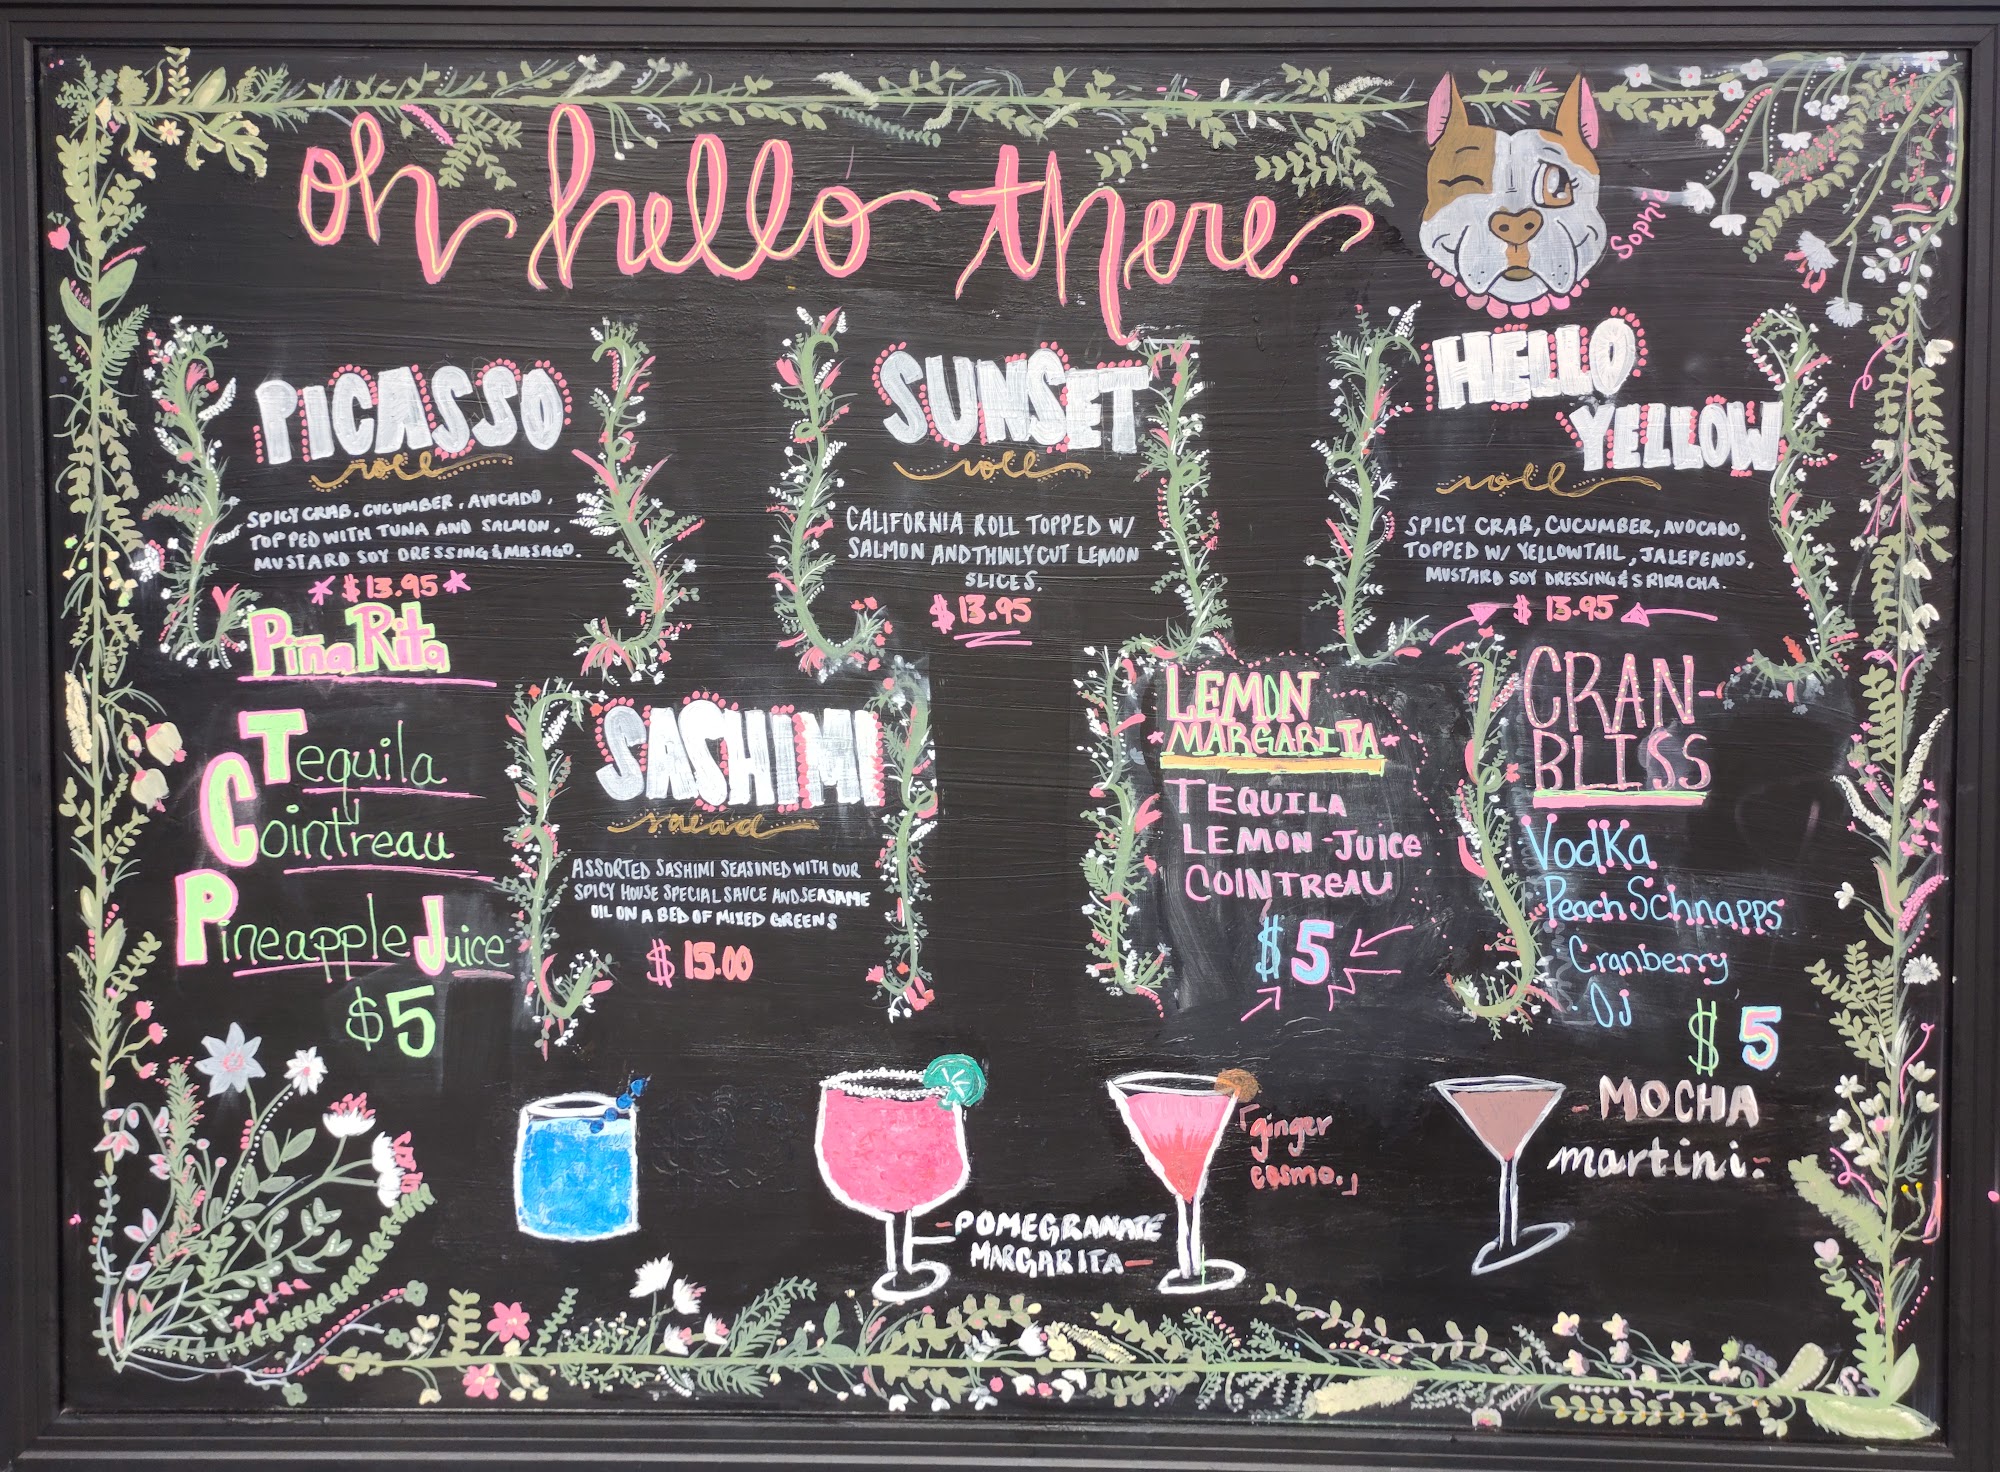 oh hello there
Sophie
PICASSO
roll
SPICY CRAB, CUCUMBER, AVOCADO,
TOPPED WITH TUNA AND SALMON,
MUSTARD SOY DRESSING & MASAGO.
* $13.95 *
SUNSET
roll
CALIFORNIA ROLL TOPPED W/
SALMON AND THINLY CUT LEMON
SLICES.
$13.95
HELLO
YELLOW
roll
SPICY CRAB, CUCUMBER, AVOCADO,
TOPPED W/ YELLOWTAIL, JALEPENOS,
MUSTARD SOY DRESSING & SRIRACHA.
$13.95
Piña Rita
Tequila
Cointreau
Pineapple Juice
$5
SASHIMI
salad
ASSORTED SASHIMI SEASINED WITH OUR
SPICY HOUSE SPECIAL SAUCE AND SEASAME
OIL ON A BED OF MIXED GREENS
$15.00
LEMON
*MARGARITA*
TEQUILA
LEMON-JUICE
COINTREAU
$5
CRAN-
BLISS
Vodka
Peach Schnapps
Cranberry
OJ
$5
-POMEGRANATE
MARGARITA-
「ginger
cosmo.」
-MOCHA
martini.-